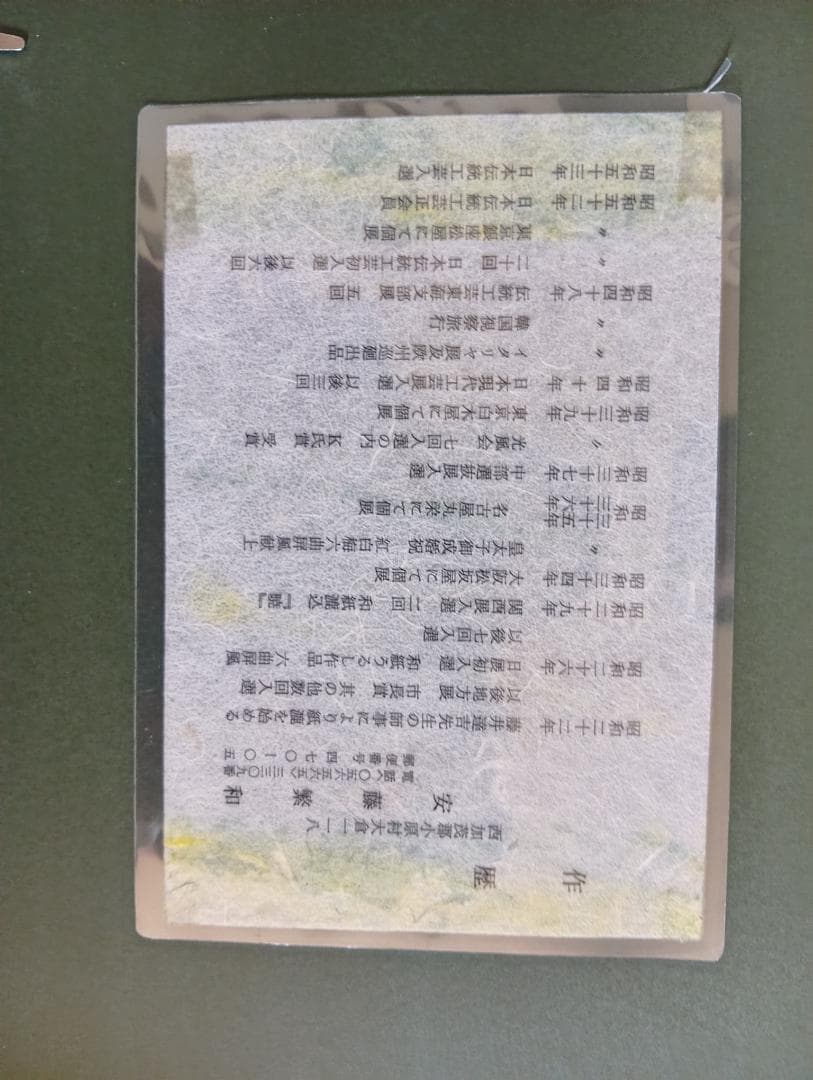 作歴
西加茂郡小原村大倉一一八
安藤繁和
電話〈〇五六五六五〉三三〇九番
郵便番号 四七〇ー〇五
昭和二十二年 藤井達吉先生の師事により紙漉を始める
以後地方展 市長賞 其の他数回入選
昭和二十六年 日展初入選 和紙うるし作品 六曲屏風
以後七回入選
昭和二十九年 関西展入選 二回 和紙漉込『暁』
昭和三十四年 大阪松坂屋にて個展
〃 皇太子御成婚祝 紅白梅六曲屏風献上
昭和三十五年三十六年 名古屋丸栄にて個展
昭和三十七年 中部選抜展入選
〃 光風会 七回入選の内 K氏賞 受賞
昭和三十九年 東京白木屋にて個展
昭和四十年 日本現代工芸展入選 以後三回
〃 イタリヤ展及欧州巡廻出品
〃 韓国視察旅行
昭和四十八年 伝統工芸東海支部展 五回
〃 二十回 日本伝統工芸初入選 以後六回
〃 東京銀座松屋にて個展
昭和五十二年 日本伝統工芸正会員
昭和五十三年 日本伝統工芸入選